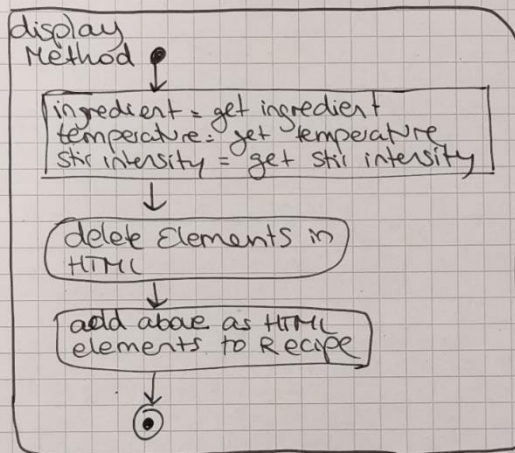 display
Method
ingredient = get ingredient
temperature = get temperature
stir intensity = get stir intensity
delete Elements in
HTML
add above as HTML
elements to Recipe